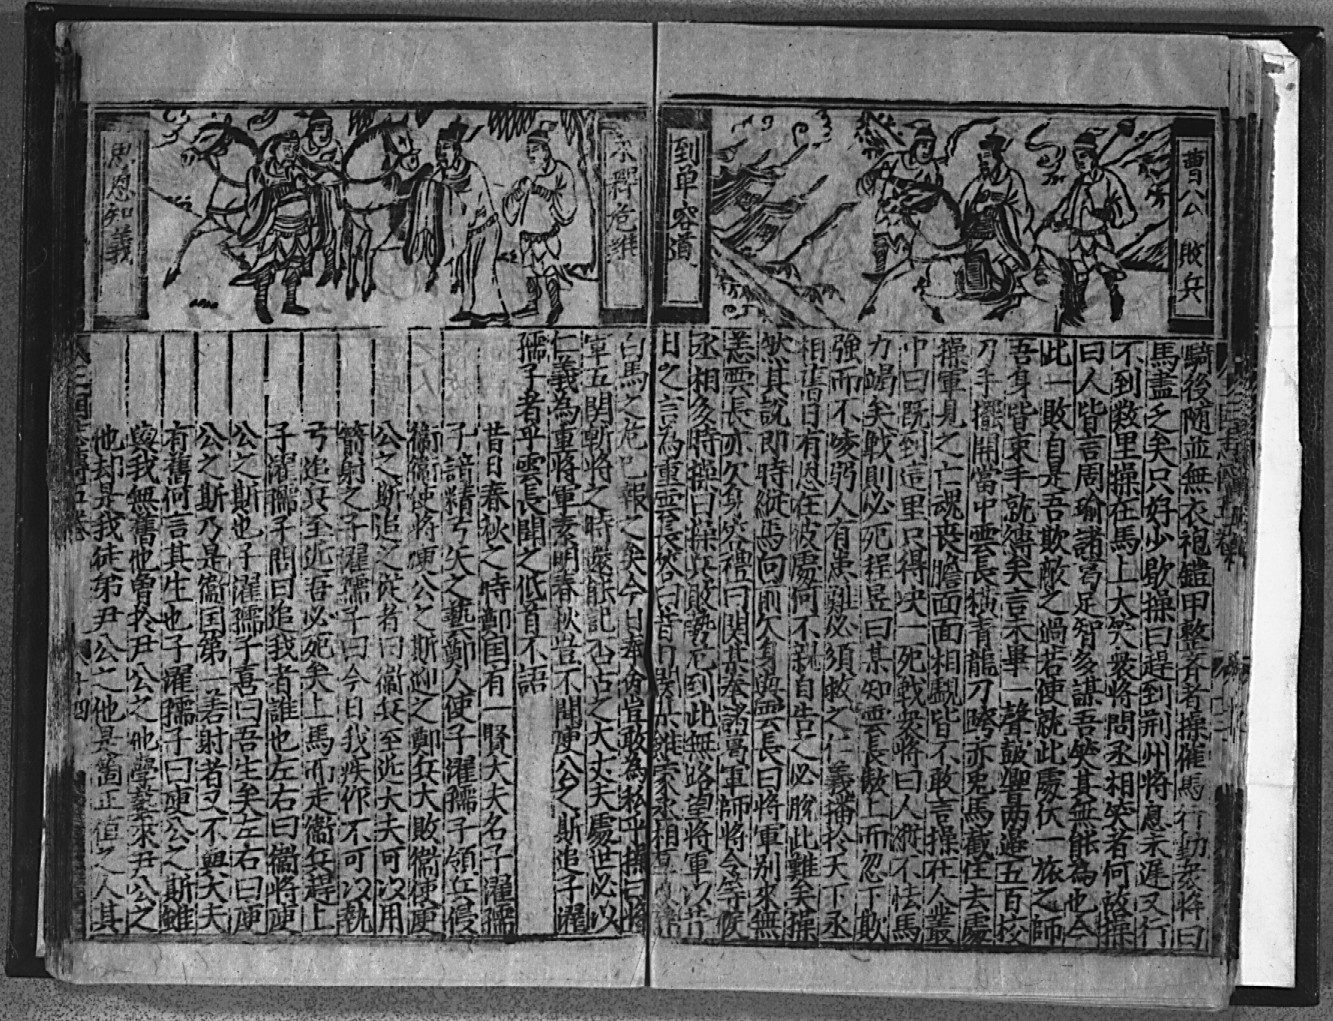 曹公敗兵
到单容道
騎後随並無衣袍鎧甲整齐者操催馬行衆將曰
馬盡乏矣只好少歇操曰趕到荆州將息未遲又行
不到数里操在馬上大笑衆將問丞相笑者何故操
曰人皆言周瑜諸葛足智多謀吾笑其無能為也今
此一敗自是吾欺敵之過若使就此處伏一旅之師
吾身皆束手就縛矣言不畢一聲鼓响两邉五百校
刀手擺開當中雲長橫青龍刀跨赤兎馬截住去處
操軍見之亡魂丧膽面面相覷皆不敢言操在人叢
中曰既到這里只得决一死戰衆將曰人縱不怯馬
力竭矣戰則必死程昱曰某知雲長傲上而忽下欺
強而不凌弱人有患难必須救之仁義播於天下丞
相舊日有恩在彼處何不親自告之必脫此難矣操
然其說即時縱馬向前欠身與雲長曰將軍别來無
恙雲長亦欠身答禮曰関某奉諸葛軍師將令等候
丞相多時操曰操兵敗势危到此無路望將軍以昔
日之言為重雲長答曰昔日関某雖蒙丞相
永釋危難
思恩知義
白馬之危已報之矣今日奉命豈敢為私乎操曰將
軍五関斬將之時還能記否古之大丈夫處世必以
仁義為重將軍素明春秋豈不聞庾公之斯追子濯
孺子者乎雲長聞之低首不語
昔日春秋之時鄭国有一賢大夫名子濯孺
子諳精弓矢之藝鄭人使子濯孺子領兵侵
衛衛使將庾公之斯迎之鄭兵大敗衛使庾
公之斯追之從者曰衞兵至近大夫可以用
箭射之子濯孺子曰今日我疾作不可以執
弓追兵至近吾必死矣上馬而走衞兵趕上
子濯孺子問曰追我者誰也左右曰衞將庾
公之斯也子濯孺子喜曰吾生矣左右曰庾
公之斯乃是衞国第一善射者又不與大夫
有舊何言其生也子濯孺子曰庾公之斯雖
與我無舊他曾於尹公之他學藝來尹公之
他却是我徒弟尹公之他是箇正值之人其